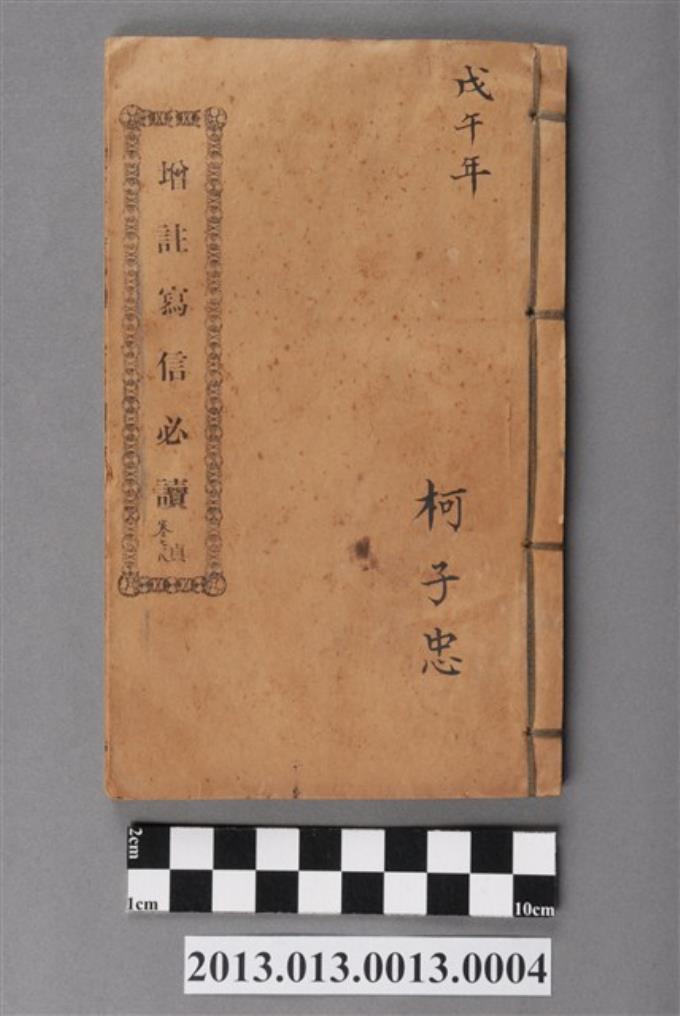 戊午年
柯子忠
增註寫信必讀
貞
2cm
1cm
10cm
2013.013.0013.0004